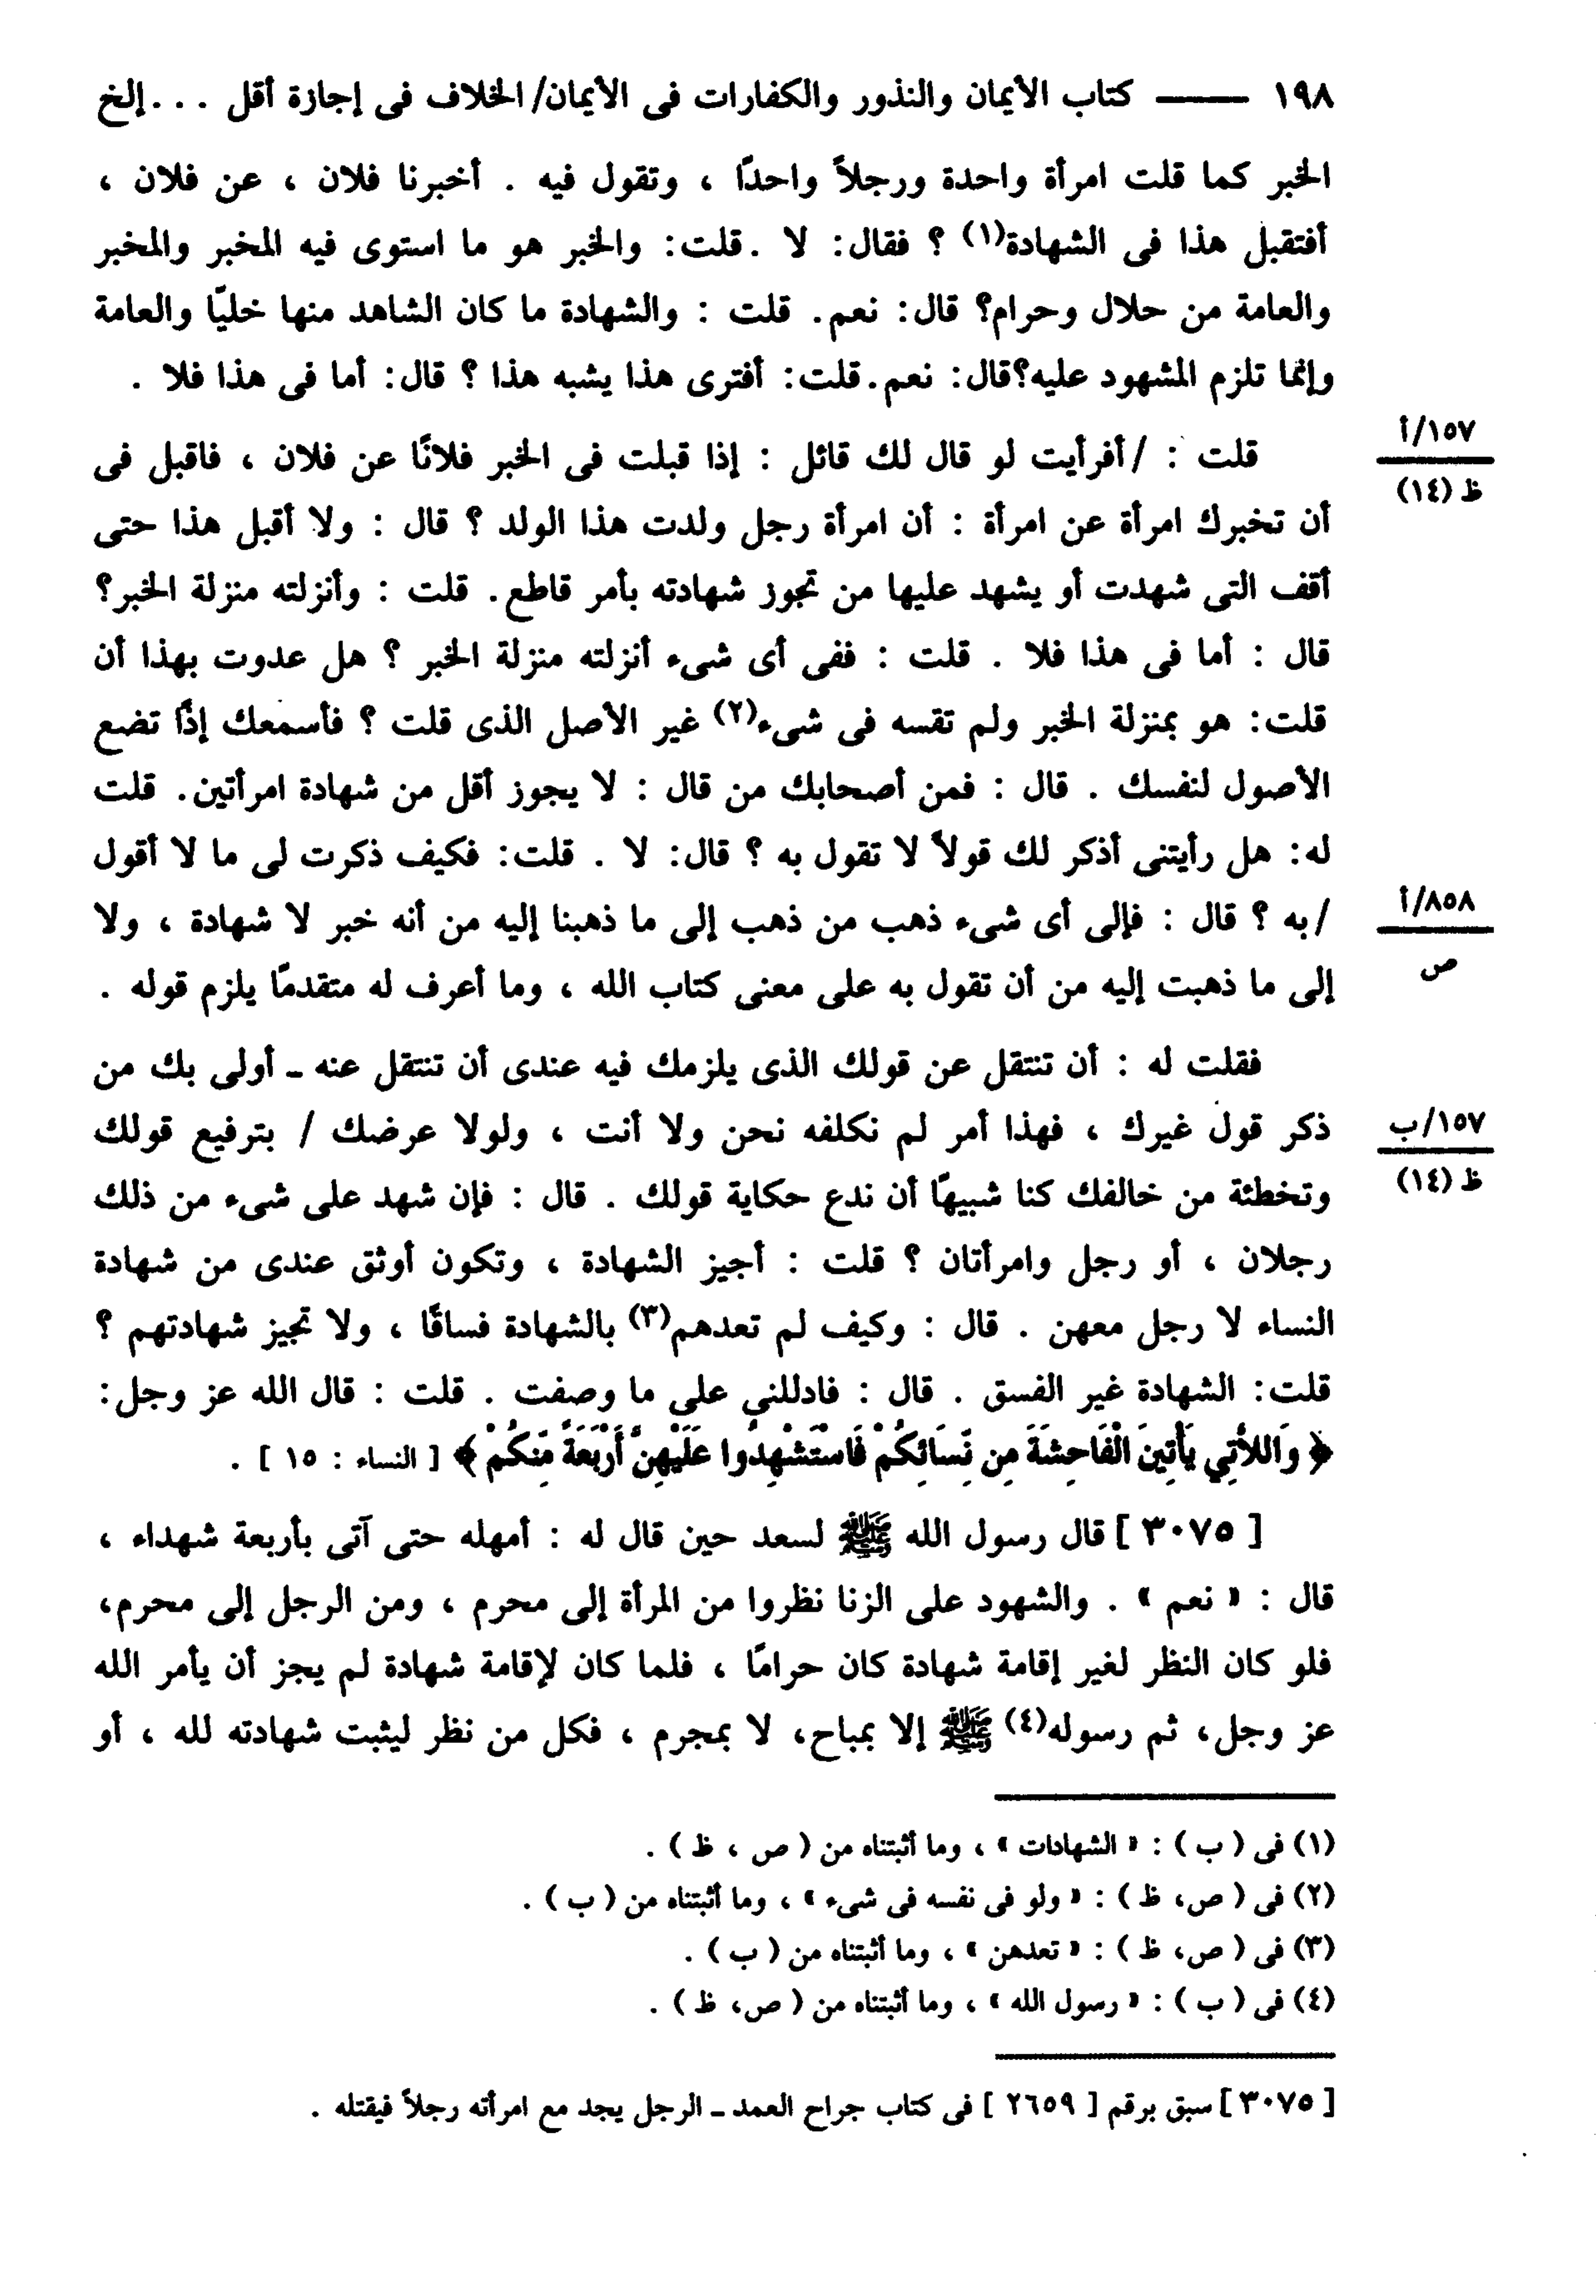 ١٩٨ ــــــ كتاب الأيمان والنذور والكفارات فى الأيمان/ الخلاف فى إجازة أقل . . . إلخ
الخبر كما قلت امرأة واحدة ورجلاً واحدًا ، وتقول فيه . أخبرنا فلان ، عن فلان ،
أفتقبل هذا فى الشهادة(١) ؟ فقال: لا .قلت: والخبر هو ما استوى فيه المخبر والمخبر
والعامة من حلال وحرام؟ قال: نعم. قلت : والشهادة ما كان الشاهد منها خليًا والعامة
وإنما تلزم المشهود عليه؟قال: نعم.قلت: أفترى هذا يشبه هذا ؟ قال: أما فى هذا فلا .
١٥٧/أ
ظ (١٤)
قلت : /أفرأيت لو قال لك قائل : إذا قبلت فى الخبر فلانًا عن فلان ، فاقبل فى
أن تخبرك امرأة عن امرأة : أن امرأة رجل ولدت هذا الولد ؟ قال : ولا أقبل هذا حتى
أقف التى شهدت أو يشهد عليها من تجوز شهادته بأمر قاطع. قلت : وأنزلته منزلة الخبر؟
قال : أما فى هذا فلا . قلت : ففى أى شىء أنزلته منزلة الخبر ؟ هل عدوت بهذا أن
قلت: هو بمنزلة الخبر ولم تقسه فى شىء(٢) غير الأصل الذى قلت ؟ فأسمعك إذًا تضع
الأصول لنفسك . قال : فمن أصحابك من قال : لا يجوز أقل من شهادة امرأتين. قلت
له: هل رأيتنى أذكر لك قولاً لا تقول به ؟ قال: لا . قلت: فكيف ذكرت لى ما لا أقول
٨٥٨/أ
ص
/به ؟ قال : فإلى أى شىء ذهب من ذهب إلى ما ذهبنا إليه من أنه خبر لا شهادة ، ولا
إلى ما ذهبت إليه من أن تقول به على معنى كتاب الله ، وما أعرف له متقدمًا يلزم قوله .
فقلت له : أن تنتقل عن قولك الذى يلزمك فيه عندى أن تنتقل عنه ـ أولى بك من
١٥٧/ب
ظ (١٤)
ذكر قول غيرك ، فهذا أمر لم نكلفه نحن ولا أنت ، ولولا عرضك / بترفيع قولك
وتخطئة من خالفك كنا شبيهًا أن ندع حكاية قولك . قال : فإن شهد على شىء من ذلك
رجلان ، أو رجل وامرأتان ؟ قلت : أجيز الشهادة ، وتكون أوثق عندى من شهادة
النساء لا رجل معهن . قال : وكيف لم تعدهم(٣) بالشهادة فساقًا ، ولا تجيز شهادتهم ؟
قلت: الشهادة غير الفسق . قال : فادللني على ما وصفت . قلت : قال الله عز وجل:
﴿ وَاللاَّتِي يَأْتِينَ الْفَاحِشَةَ مِن نِّسَائِكُمْ فَاسْتَشْهِدُوا عَلَيْهِنَّ أَرْبَعَةً مِّنكُمْ ﴾ [ النساء : ١٥ ] .
[ ٣٠٧٥ ] قال رسول الله ﷺ لسعد حين قال له : أمهله حتى آتى بأربعة شهداء ،
قال : « نعم » . والشهود على الزنا نظروا من المرأة إلى محرم ، ومن الرجل إلى محرم،
فلو كان النظر لغير إقامة شهادة كان حرامًا ، فلما كان لإقامة شهادة لم يجز أن يأمر الله
عز وجل، ثم رسوله(٤) ﷺ إلا بمباح، لا بمجرم ، فكل من نظر ليثبت شهادته لله ، أو
(١) فى ( ب ) : « الشهادات » ، وما أثبتناه من ( ص ، ظ ) .
(٢) فى ( ص، ظ ) : « ولو فى نفسه فى شىء » ، وما أثبتناه من ( ب ) .
(٣) فى ( ص، ظ ) : « تعدهن » ، وما أثبتناه من ( ب ) .
(٤) فى ( ب ) : « رسول الله » ، وما أثبتناه من ( ص، ظ ) .
[ ٣٠٧٥ ] سبق برقم [ ٢٦٥٩ ] فى كتاب جراح العمد ـ الرجل يجد مع امرأته رجلاً فيقتله .